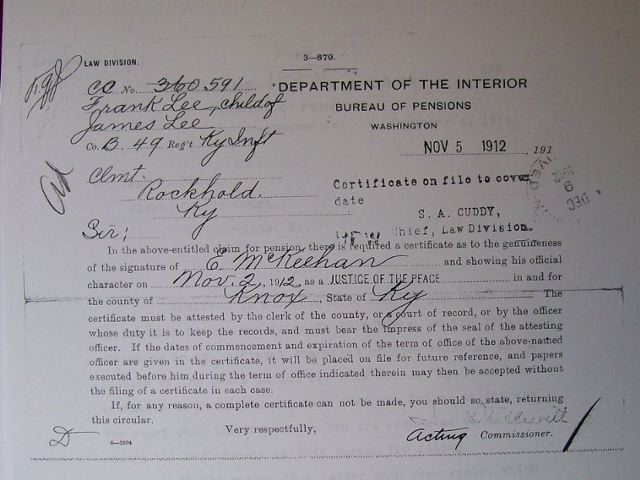 3—879.
LAW DIVISION.
CC No. 360,591
Frank Lee, child of
James Lee
Co. B. 49 Reg't Ky Inft
DEPARTMENT OF THE INTERIOR
BUREAU OF PENSIONS
WASHINGTON
NOV 5 1912, 191
Clmt.
Rockhold.
Ky
Certificate on file to cover
date
S. A. CUDDY,
Chief, Law Division.
DEC 9
Sir;
In the above-entitled claim for pension, there is required a certificate as to the genuineness
of the signature of E. McKeehan and showing his official
character on Nov. 2, 1912, as a JUSTICE OF THE PEACE in and for
the county of Knox, State of Ky. The
certificate must be attested by the clerk of the county, or a court of record, or by the officer
whose duty it is to keep the records, and must bear the impress of the seal of the attesting
officer. If the dates of commencement and expiration of the term of office of the above-named
officer are given in the certificate, it will be placed on file for future reference, and papers
executed before him during the term of office indicated therein may then be accepted without
the filing of a certificate in each case.
If, for any reason, a complete certificate can not be made, you should so state, returning
this circular.
Very respectfully,
Acting Commissioner.
D
6—2694